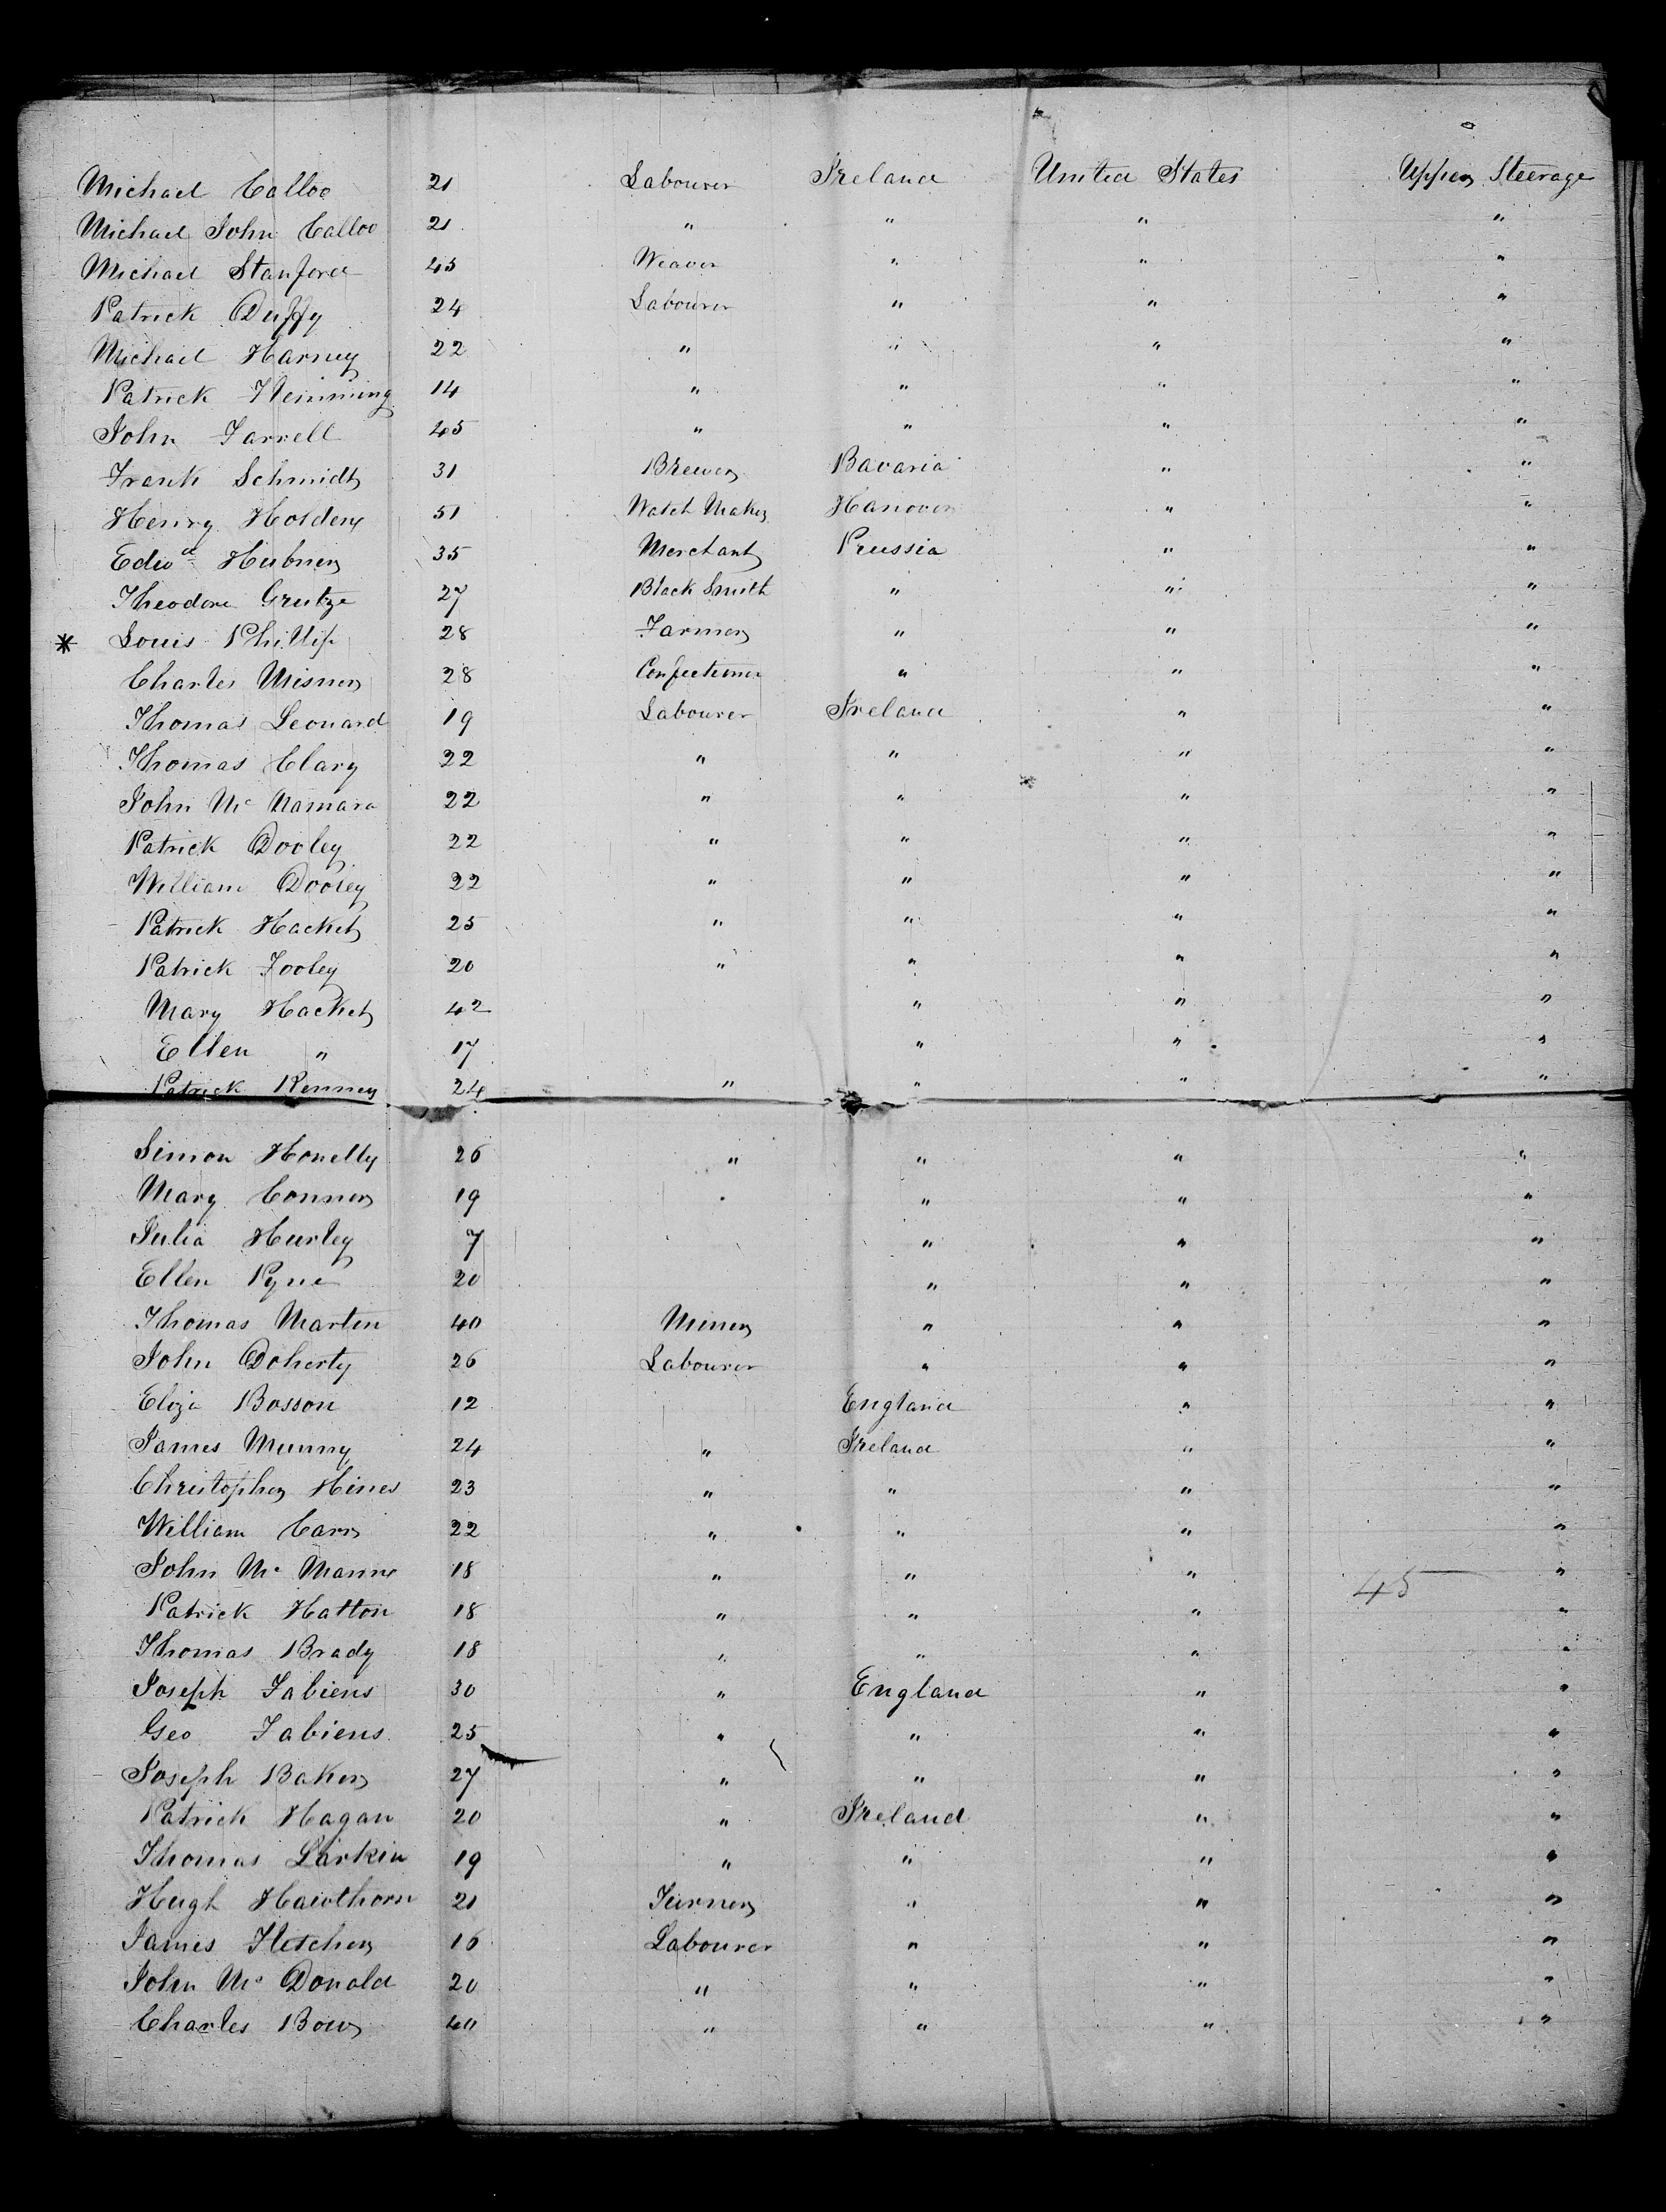 Michael Calloo 21 Labourer Ireland United States Upper Steerage
Michael John Calloo 21 " " " "
Michael Stanford 45 Weaver " " "
Patrick Duffy 24 Labourer " " "
Michael Harney 22 " " " "
Patrick Flemming 14 " " " "
John Farrell 45 " " " "
Frank Schmidt 31 Brewer Bavaria " "
Henry Holdene 51 Watch Maker Hanover " "
Edwd Hubner 35 Merchant Prussia " "
Theodore Grutze 27 Black Smith " " "
* Louis Phillip 28 Farmer " " "
Charles Misner 28 Confectioner " " "
Thomas Leonard 19 Labourer Ireland " "
Thomas Clary 22 " " " "
John Mc Namara 22 " " " "
Patrick Dooley 22 " " " "
William Dooley 22 " " " "
Patrick Hacket 25 " " " "
Patrick Fooley 20 " " " "
Mary Hacket 42 " " "
Ellen " 17 " " "
Patrick Kenney 24 " " " "
Simon Honelly 26 " " " "
Mary Conner 19 " " "
Julia Hurley 7 " " "
Ellen Pyne 20 " " "
Thomas Martin 40 Miner " " "
John Doherty 26 Labourer " " "
Eliza Bosson 12 England " "
James Munny 24 " Ireland " "
Christopher Hines 23 " " " "
William Carr 22 " " " "
John Mc Manne 18 " " " "
45
Patrick Hatton 18 " " " "
Thomas Brady 18 " " " "
Joseph Fabiens 30 " England " "
Geo Fabiens 25 " " " "
Joseph Baker 27 " " " "
Patrick Hagan 20 " Ireland " "
Thomas Larkin 19 " " " "
Hugh Hawthorn 21 Turner " " "
James Fletcher 16 Labourer " " "
John Mc Donald 20 " " " "
Charles Bow 40 " " " "